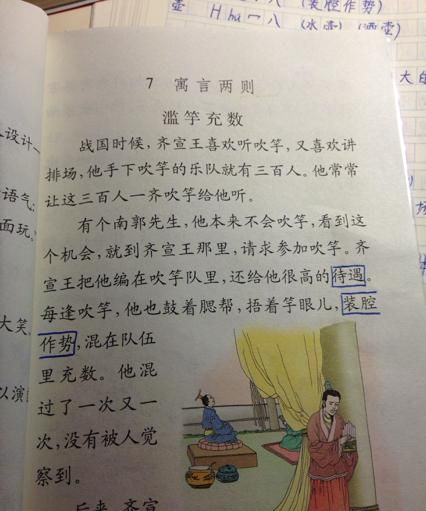 壶 Hhu 一 八 (装腔作势) (水壶) (酒壶)
大的
设计一
语气;
面玩。
大笑
以演
7 寓言两则
滥竽充数
战国时候,齐宣王喜欢听吹竽,又喜欢讲
排场,他手下吹竽的乐队就有三百人。他常常
让这三百人一齐吹竽给他听。
有个南郭先生,他本来不会吹竽,看到这
个机会,就到齐宣王那里,请求参加吹竽。齐
宣王把他编在吹竽队里,还给他很高的待遇。
每逢吹竽,他也鼓着腮帮,捂着竽眼儿,装腔
作势,混在队伍
里充数。他混
过了一次又一
次,没有被人觉
察到。
后来,齐宣